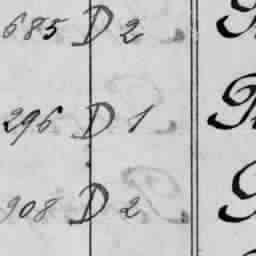 685 D 2
296 D 1
908 D 2